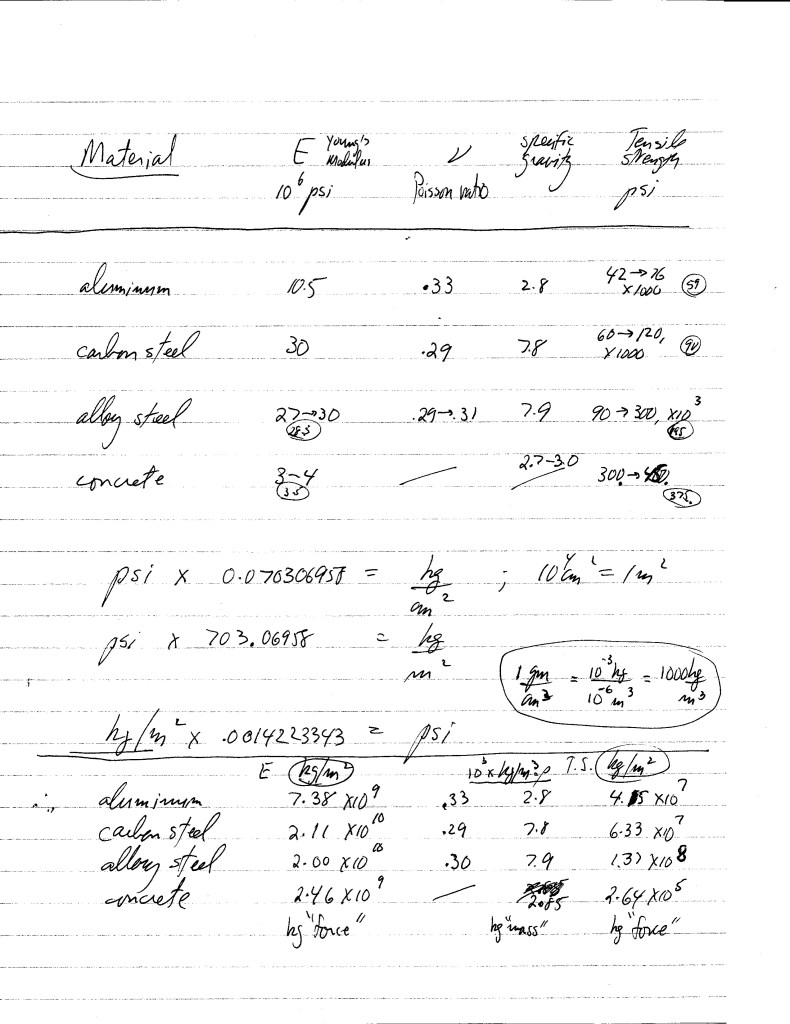 Material E Young's Modulus ν specific gravity Tensile strength
10⁶ psi Poisson ratio psi
aluminum 10.5 .33 2.8 42→76 x1000 59
carbon steel 30 .29 7.8 60→120, x1000 90
alloy steel 27→30 .29→.31 7.9 90→300, x10³
28.5 195
concrete 3-4 — 2.7-3.0 300.→450.
3.5 375.
psi x 0.070306958 = kg/cm² ; 10⁴cm² = 1m²
psi x 703.06958 = kg/m²
1 gm/cm³ = 10⁻³kg/10⁻⁶m³ = 1000kg/m³
kg/m² x .0014223343 = psi
E kg/m² 10³ x kg/m³ ρ T.S. kg/m²
∴, aluminum 7.38 x10⁹ .33 2.8 4.15 x10⁷
carbon steel 2.11 x10¹⁰ .29 7.8 6.33 x10⁷
alloy steel 2.00 x10¹⁰ .30 7.9 1.37 x10⁸
concrete 2.46 x10⁹ — 2.85 2.64 x10⁵
kg "force" kg "mass" kg "force"